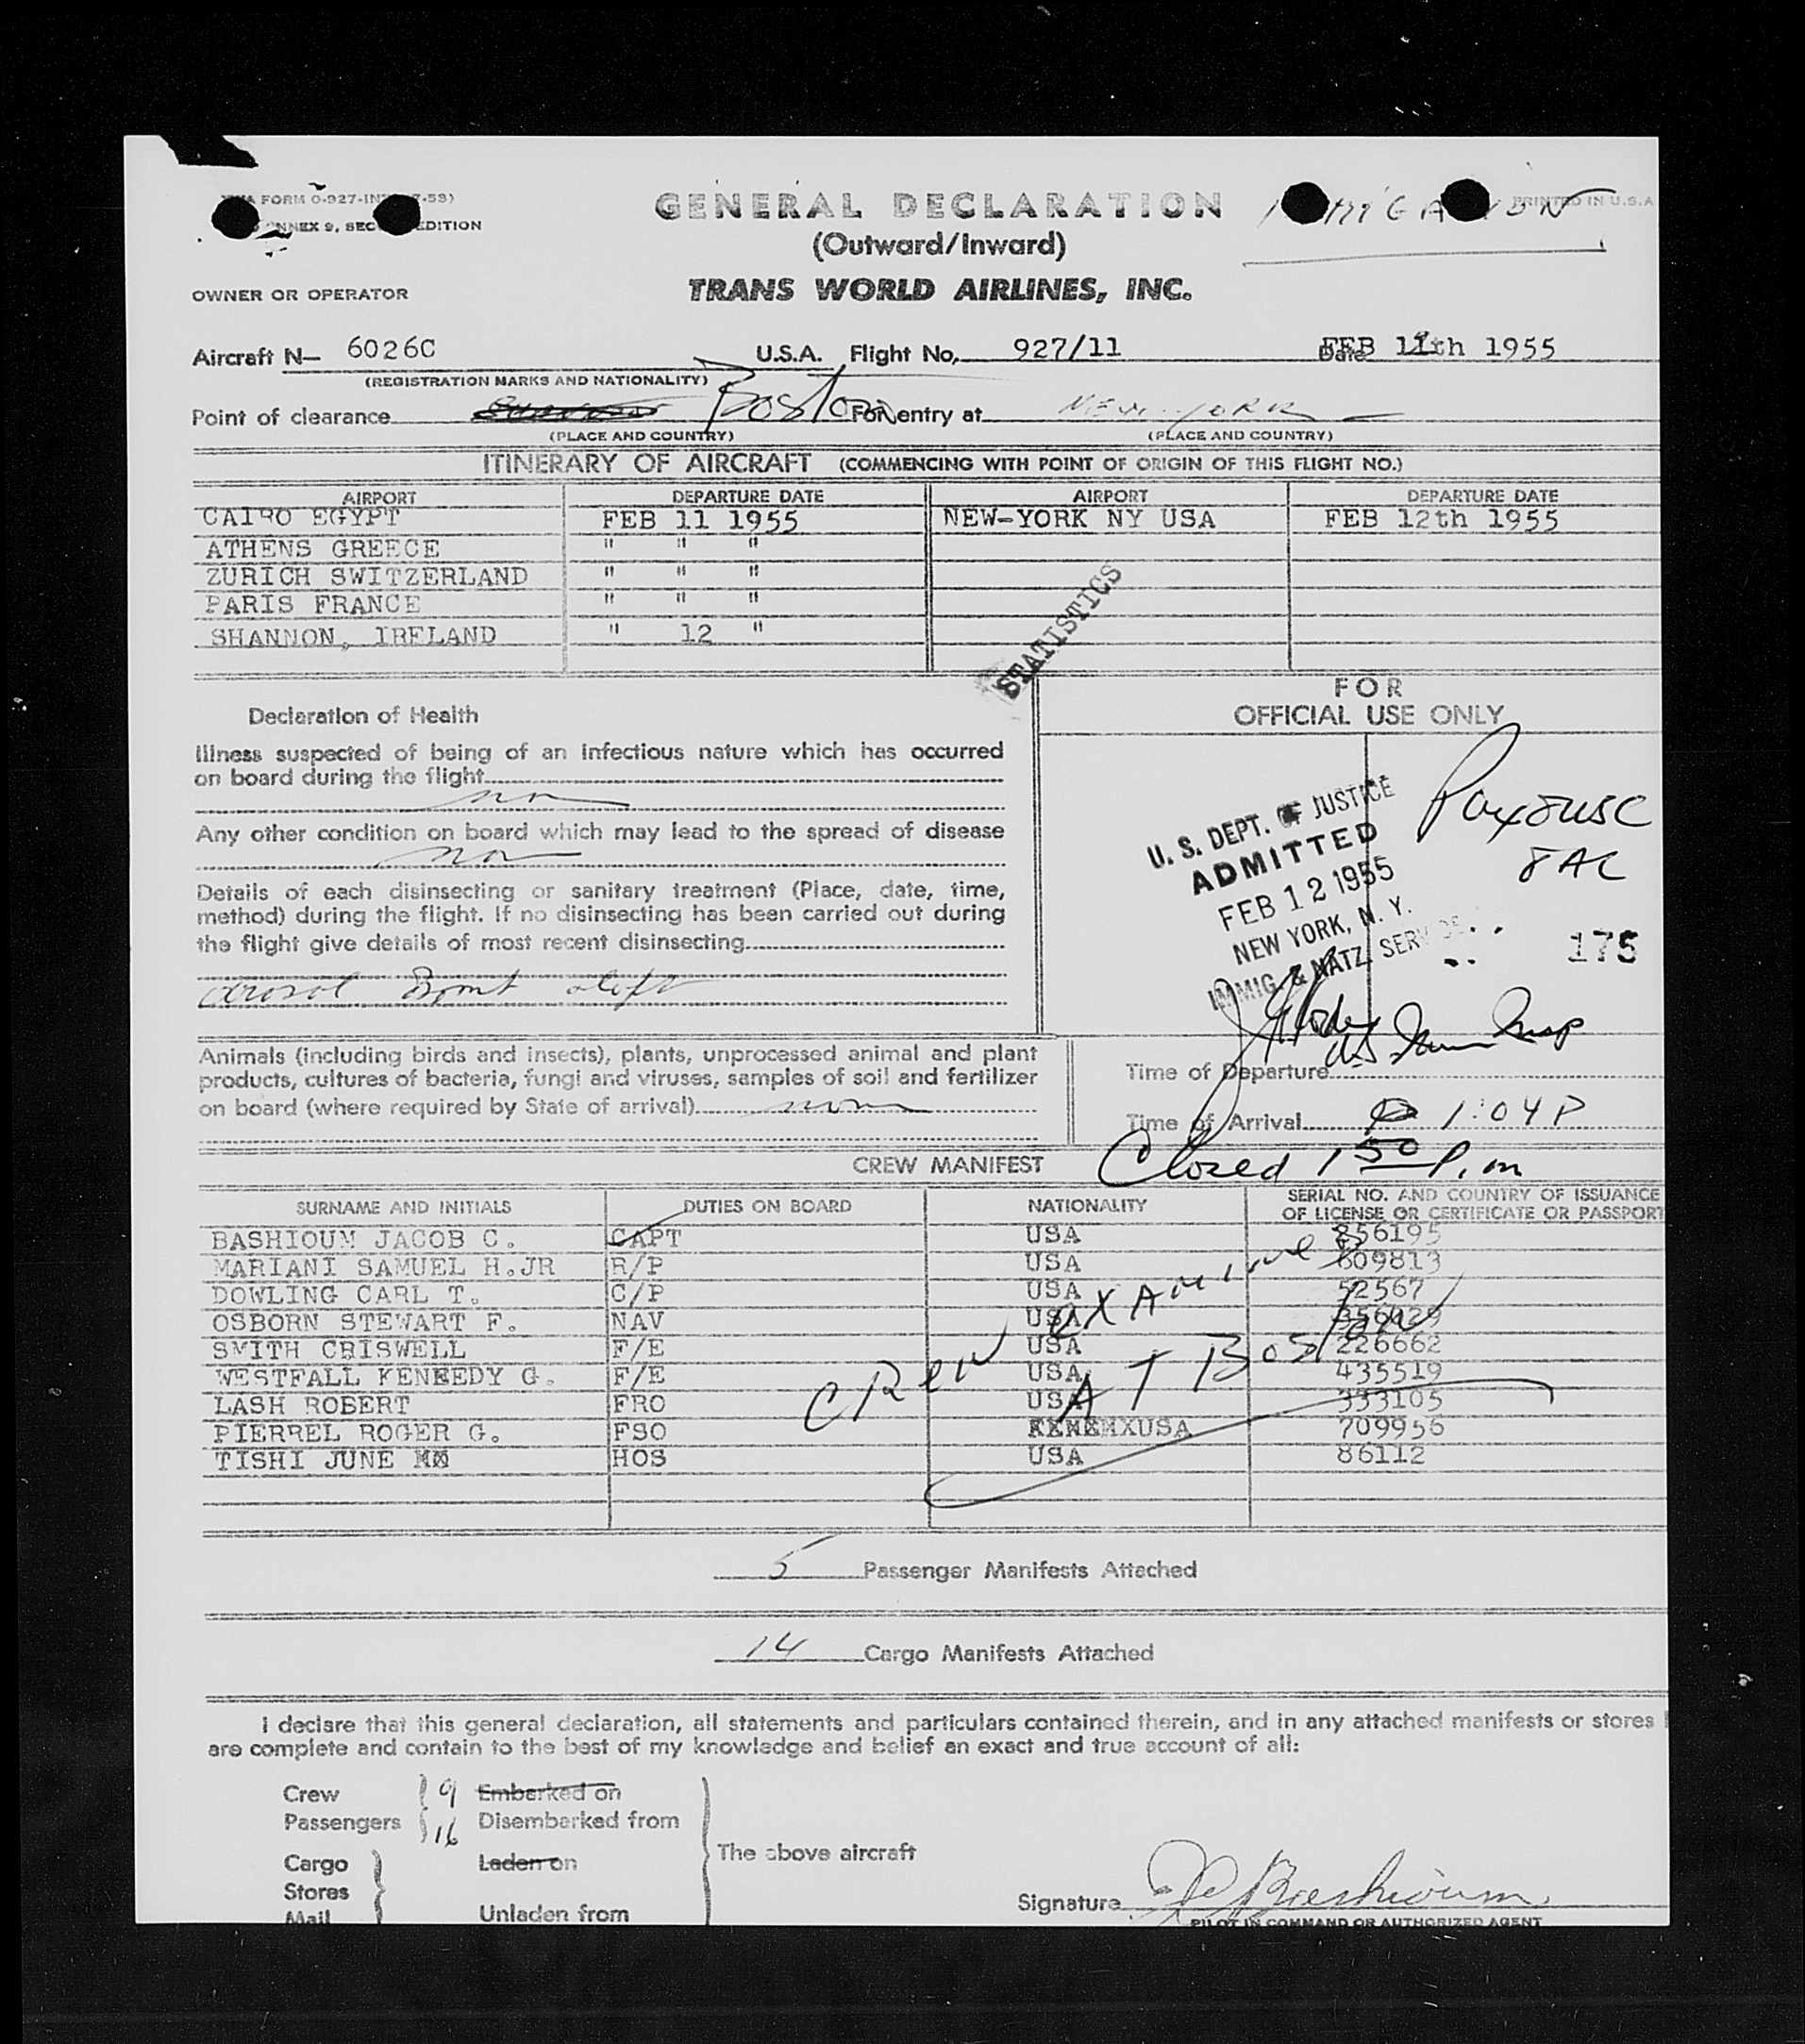 FORM 0-927-IN
ANNEX 9, SEC EDITION
GENERAL DECLARATION
PRINTED IN U.S.A
(Outward/Inward)
OWNER OR OPERATOR
TRANS WORLD AIRLINES, INC.
Aircraft N— 6026C U.S.A. Flight No. 927/11 Date FEB th 1955
(REGISTRATION MARKS AND NATIONALITY)
Point of clearance Boston For entry at NEW YORK
(PLACE AND COUNTRY) (PLACE AND COUNTRY)
ITINERARY OF AIRCRAFT (COMMENCING WITH POINT OF ORIGIN OF THIS FLIGHT NO.)
AIRPORT DEPARTURE DATE AIRPORT DEPARTURE DATE
CAIRO EGYPT FEB 11 1955 NEW-YORK NY USA FEB 12th 1955
ATHENS GREECE " " "
ZURICH SWITZERLAND " " "
PARIS FRANCE " " "
SHANNON, IRELAND " 12 "
STATISTICS
FOR
OFFICIAL USE ONLY
Declaration of Health
Illness suspected of being of an infectious nature which has occurred
on board during the flight
Any other condition on board which may lead to the spread of disease
Details of each disinsecting or sanitary treatment (Place, date, time,
method) during the flight. If no disinsecting has been carried out during
the flight give details of most recent disinsecting
aerosol
U. S. DEPT. OF JUSTICE
ADMITTED
FEB 12 1955
NEW YORK, N. Y.
IMMIG. & NATZ. SERVICE
8AC
175
Insp
Animals (including birds and insects), plants, unprocessed animal and plant
products, cultures of bacteria, fungi and viruses, samples of soil and fertilizer
on board (where required by State of arrival)
Time of Departure
Time of Arrival 1:04 P
Closed 1 50 P.m
CREW MANIFEST
SURNAME AND INITIALS DUTIES ON BOARD NATIONALITY SERIAL NO. AND COUNTRY OF ISSUANCE
OF LICENSE OR CERTIFICATE OR PASSPORT
BASHIOUM JACOB C. CAPT USA 856195
MARIANI SAMUEL H.JR R/P USA 609813
DOWLING CARL T. C/P USA 52567
OSBORN STEWART F. NAV USA
SMITH CRISWELL F/E USA 226662
WESTFALL KENEEDY G. F/E USA 435519
LASH ROBERT FRO USA 333105
PIERREL ROGER G. FSO USA 709956
TISHI JUNE M HOS USA 86112
CREW EXAMINED
AT Boston
5 Passenger Manifests Attached
14 Cargo Manifests Attached
I declare that this general declaration, all statements and particulars contained therein, and in any attached manifests or stores
are complete and contain to the best of my knowledge and belief an exact and true account of all:
Crew 9 Embarked on
Passengers 16 Disembarked from
The above aircraft
Cargo Laden on
Stores
Mail Unladen from
Signature J C Bashioum
PILOT IN COMMAND OR AUTHORIZED AGENT